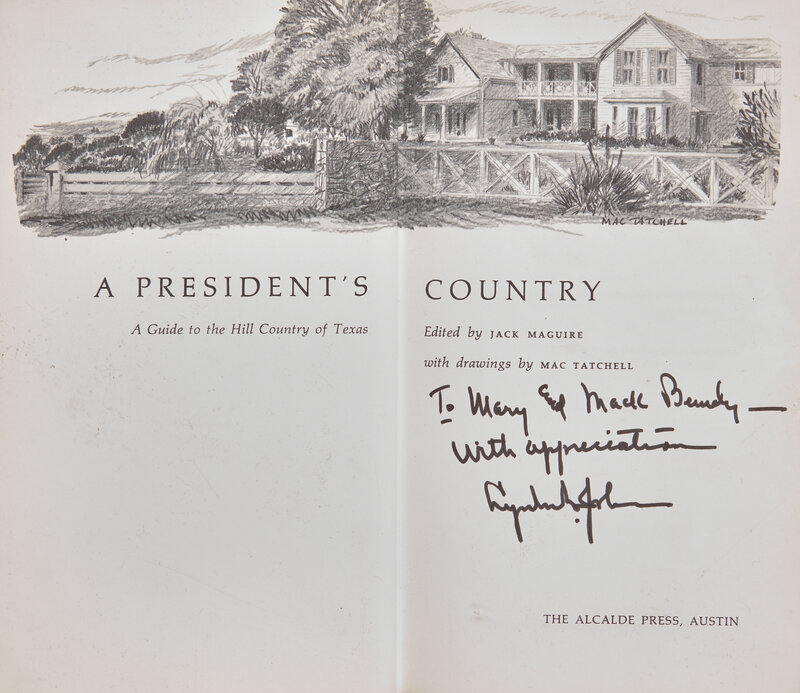 MAC TATCHELL
A PRESIDENT'S COUNTRY
A Guide to the Hill Country of Texas
Edited by JACK MAGUIRE
with drawings by MAC TATCHELL
To Mary & Mack Bundy —
With appreciation
Lyndon B. Johnson
THE ALCALDE PRESS, AUSTIN